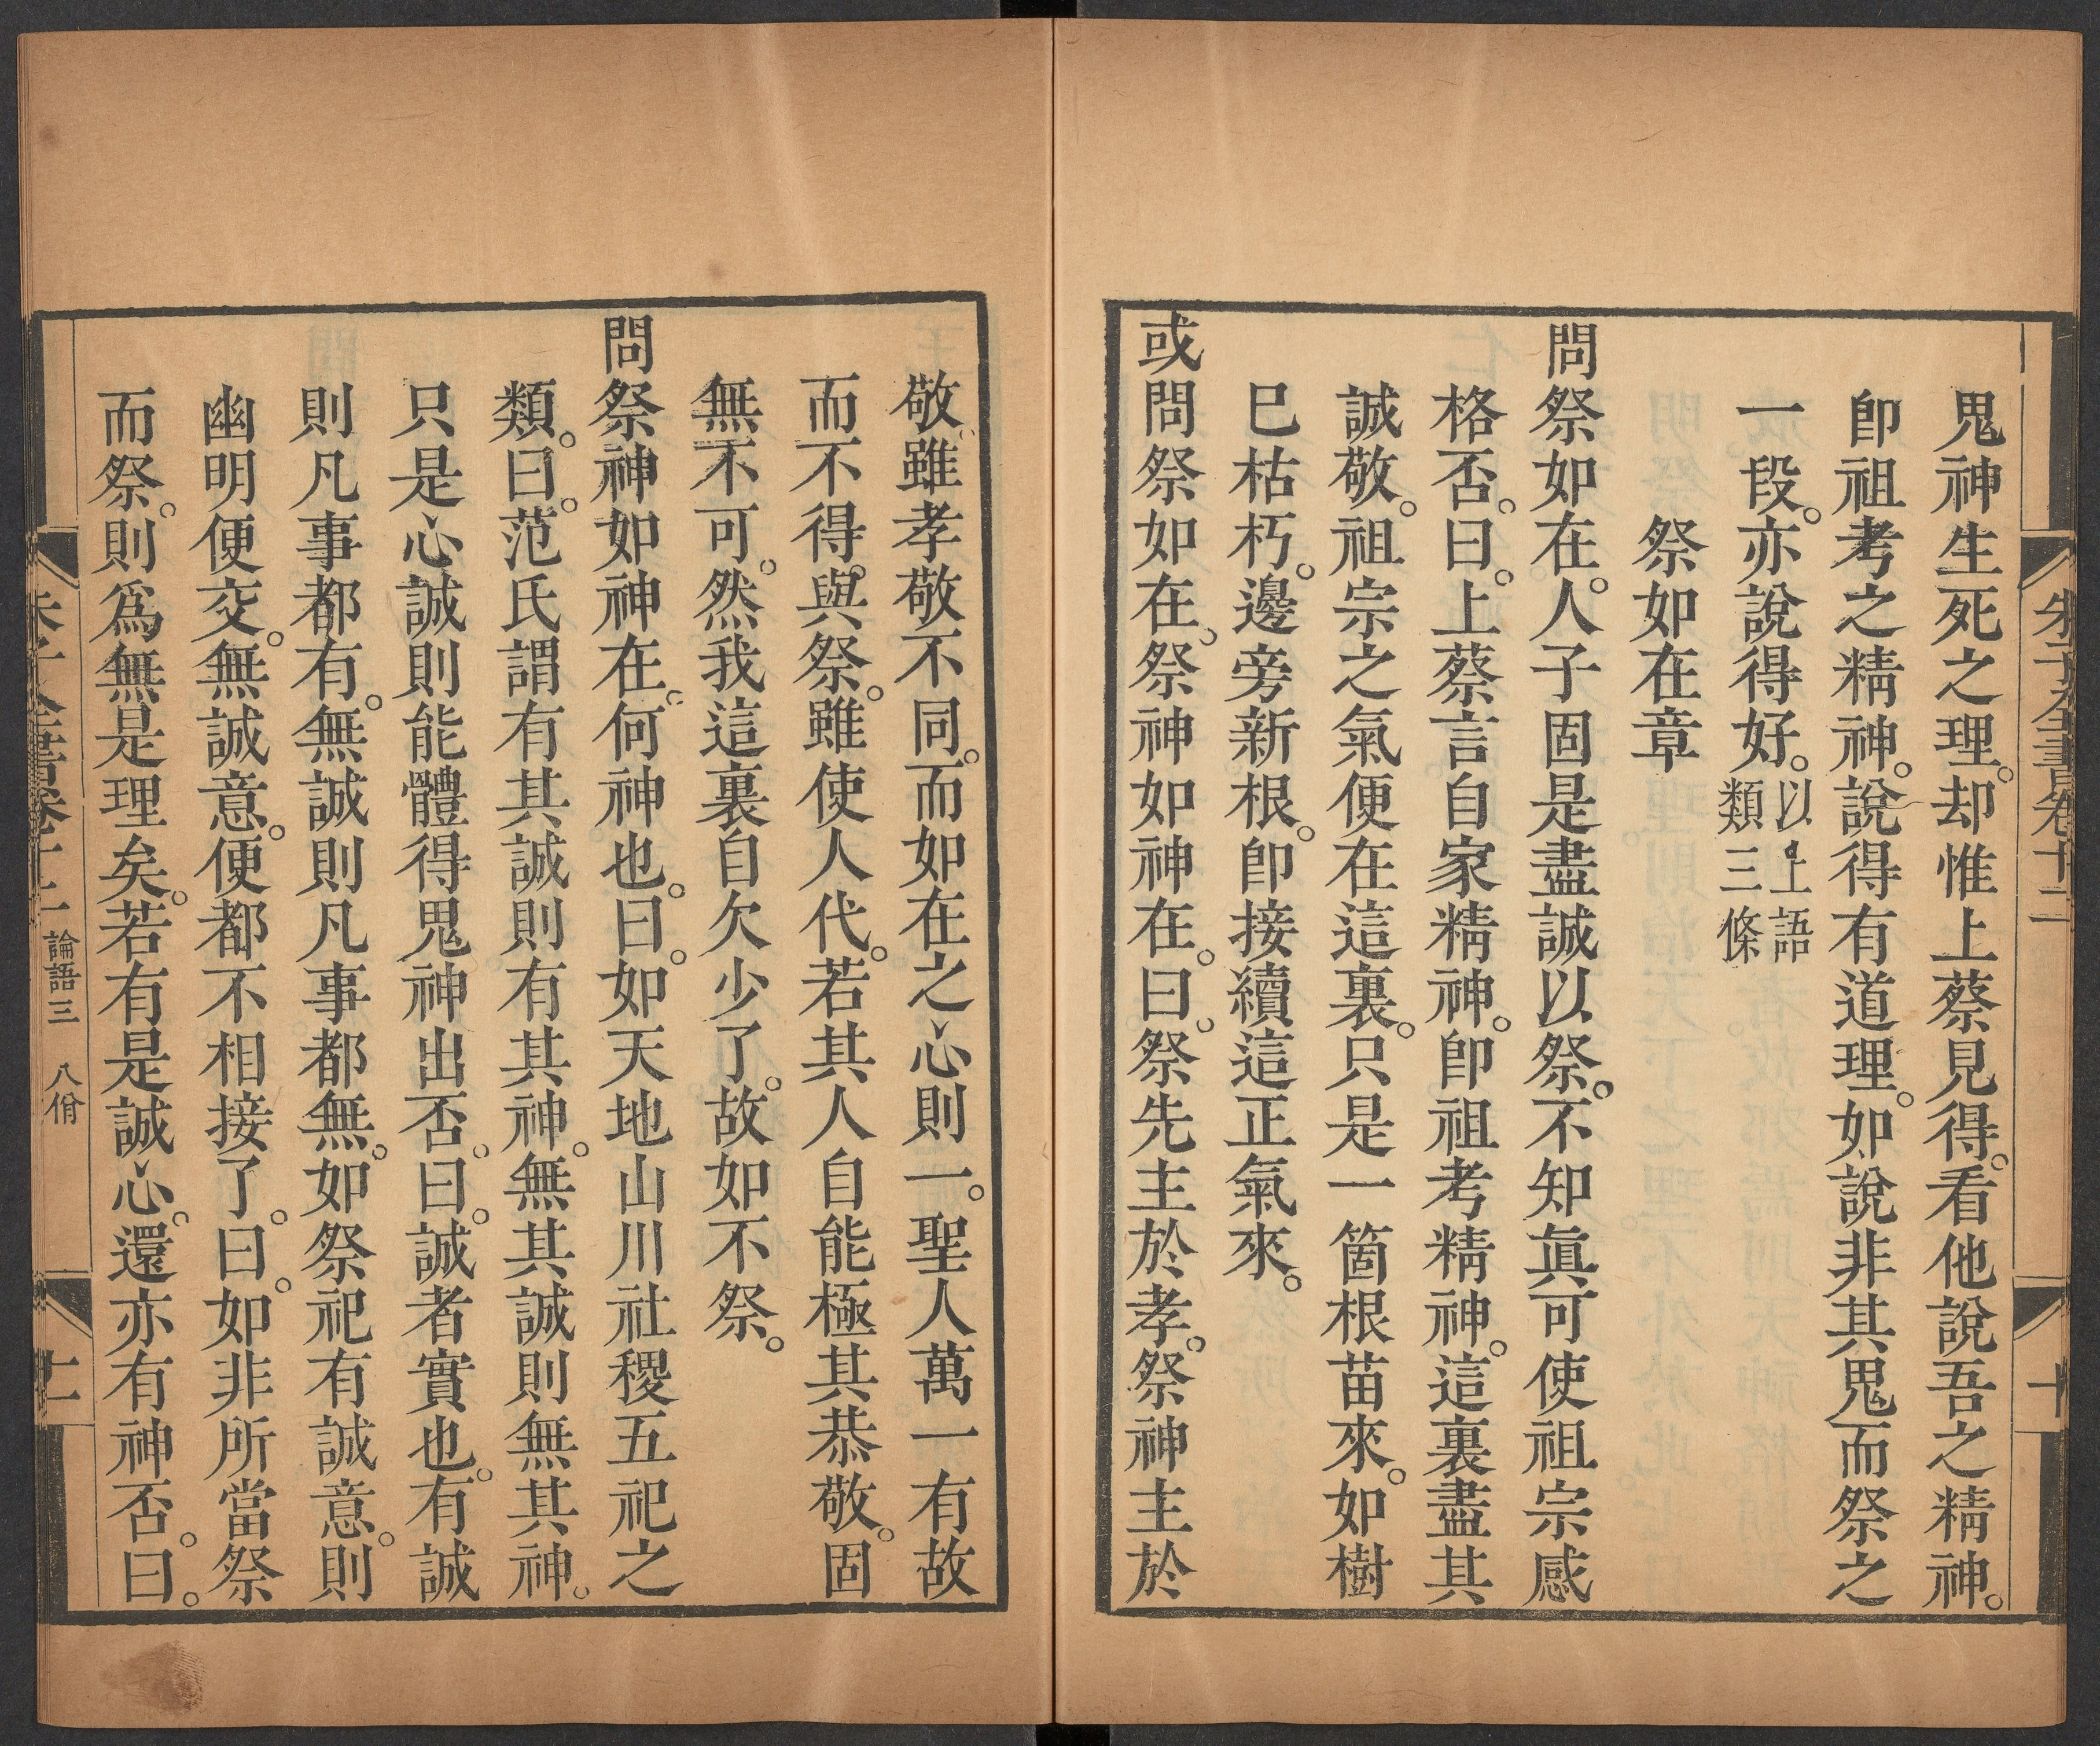 朱子全書卷十二
十
鬼神生死之理。却惟上蔡見得。看他說吾之精神。
卽祖考之精神。說得有道理。如說非其鬼而祭之
一段。亦說得好。以上語類三條
祭如在章
問祭如在。人子固是盡誠以祭。不知眞可使祖宗感
格否。曰。上蔡言自家精神。卽祖考精神。這裏盡其
誠敬。祖宗之氣便在這裏。只是一箇根苗來。如樹
巳枯朽。邊旁新根。卽接續這正氣來。
或問祭如在。祭神如神在。曰。祭先主於孝。祭神主於
敬。雖孝敬不同。而如在之心則一。聖人萬一有故
而不得與祭。雖使人代。若其人自能極其恭敬。固
無不可。然我這裏自欠少了。故如不祭。
問祭神如神在。何神也。曰。如天地山川社稷五祀之
類。曰。范氏謂有其誠則有其神。無其誠則無其神。
只是心誠則能體得鬼神出否。曰。誠者實也。有誠
則凡事都有。無誠則凡事都無。如祭祀有誠意。則
幽明便交。無誠意。便都不相接了。曰。如非所當祭
而祭。則爲無是理矣。若有是誠心。還亦有神否。曰。
朱子全書卷十二 論語三 八佾
十一